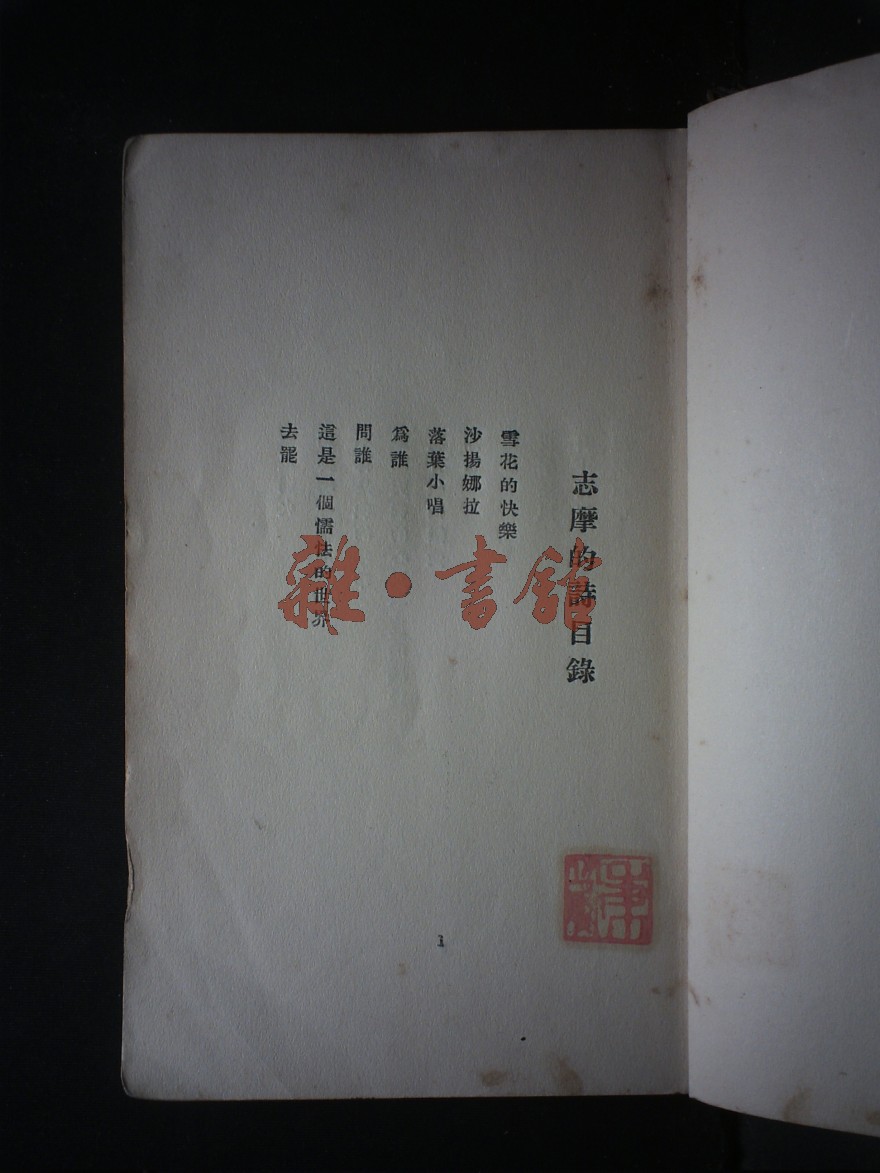 志摩的詩目錄
雪花的快樂
沙揚娜拉
落葉小唱
爲誰
問誰
這是一個懦怯的世界
去罷
雜·書館
1